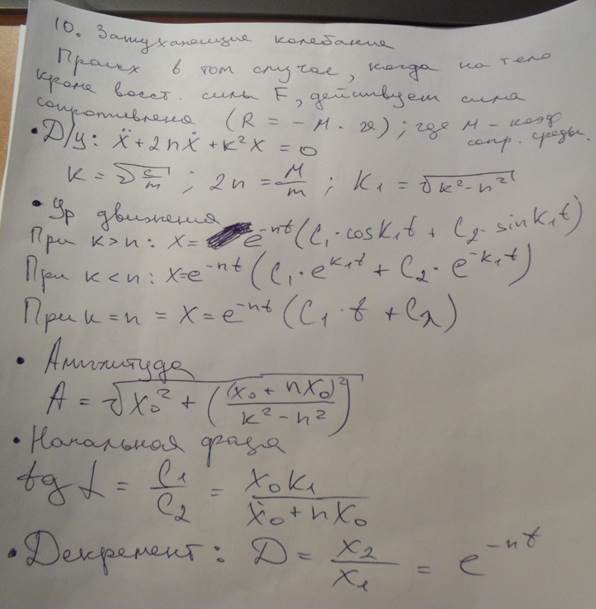 10. Затухающие колебания
Происх в том случае, когда на тело
кроме восст. силы F, действует сила
сопротивлена (R = -м · υ); где м - коэф
сопр. среды.
• Д/у: ẍ + 2nẋ + k²x = 0
k = √(c/m) ; 2n = м/m ; k₁ = √(k²-n²)
• Ур движения
При k>n: x = e^(-nt) (C₁·cosk₁t + C₂·sink₁t)
При k<n: x = e^(-nt) (C₁·e^(k₁t) + C₂·e^(-k₁t))
При k=n = x = e^(-nt) (C₁·t + C₂)
• Амплитуда
A = √(x₀² + ((ẋ₀ + nx₀)²/(k²-n²)))
• Начальная фаза
tg α = C₁/C₂ = x₀k₁/(ẋ₀ + nx₀)
• Декремент: D = x₂/x₁ = e^(-nt)